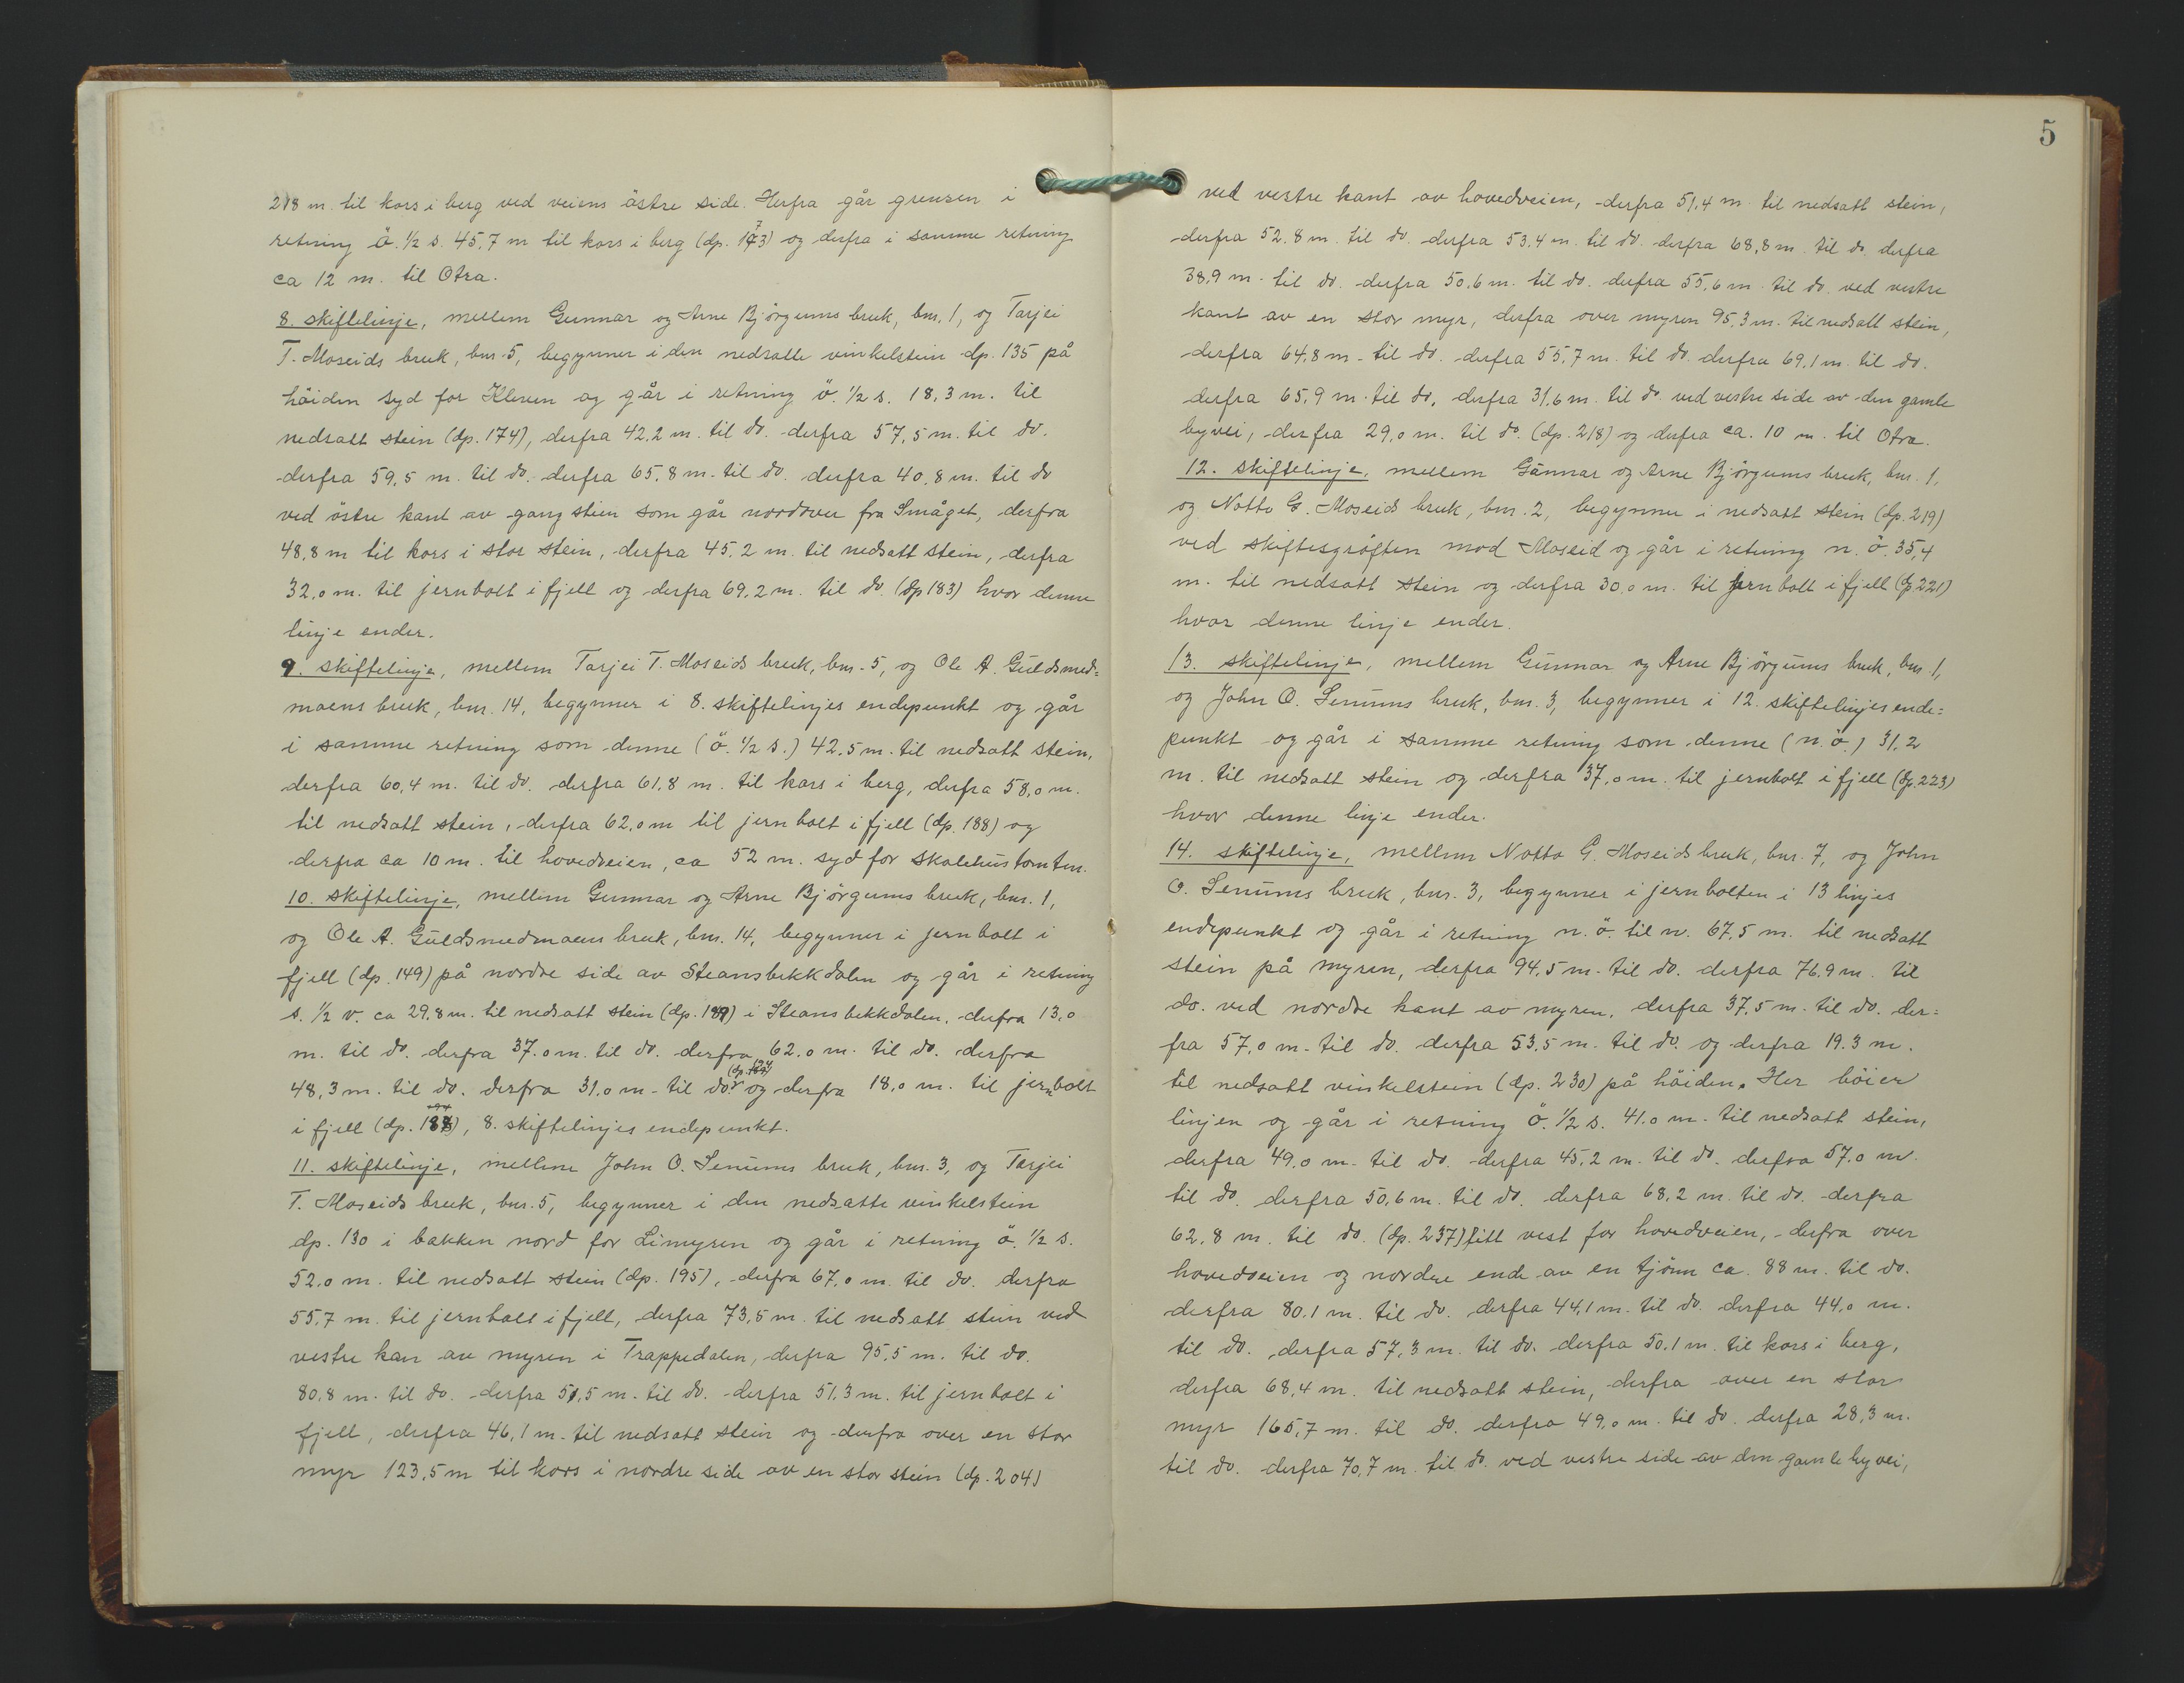 218 m. til kors i berg ved veiens östre side. Herfra går grensen i
retning ö. 1/2 s. 45,7 m til kors i berg (dp. 173) og derfra i samme retning
ca 12 m. til Otra.
8. skiftelinje, mellem Gunnar og Arne Björgums bruk, bnr. 1, og Tarjei
T. Moseids bruk, bnr. 5, begynner i den nedsatte vinkelstein dp. 135 på
höiden syd for Kleven og går i retning ö. 1/2 s. 18,3 m. til
nedsatt stein (dp. 174), derfra 42,2 m. til do. derfra 57,5 m. til do.
derfra 59,5 m. til do. derfra 65,8 m. til do. derfra 40,8 m. til do
ved östre kant av gangstien som går nordover fra Småget, derfra
48,8 m til kors i stor stein, derfra 45,2 m. til nedsatt stein, derfra
32,0 m. til jernbolt i fjell og derfra 69,2 m. til do. (dp 183) hvor denne
linje ender.
9. skiftelinje, mellem Tarjei T. Moseids bruk, bnr. 5, og Ole A. Guldsmed=
moens bruk, bnr. 14, begynner i 8. skiftelinjes endepunkt og går
i samme retning som denne (ö. 1/2 s.) 42,5 m. til nedsatt stein,
derfra 60,4 m. til do. derfra 61,8 m. til kors i berg, derfra 58,0 m.
til nedsatt stein, derfra 62,0 m til jernbolt i fjell (dp. 188) og
derfra ca 10 m. til hovedveien, ca 52 m. syd for skolehustomten.
10. skiftelinje, mellem Gunnar og Arne Björgums bruk, bnr. 1,
og Ole A. Guldsmedmoens bruk, bnr. 14, begynner i jernbolt i
fjell (dp. 149) på nordre side av Steansbekkdalen og går i retning
s. 1/2 v. ca 29,8 m. til nedsatt stein (dp. 189) i Steansbekkdalen, derfra 13,0
m. til do. derfra 37,0 m. til do. derfra 62,0 m. til do. derfra
48,3 m. til do. derfra 31,0 m. til do. (dp. 194) og derfra 18,0 m. til jernbolt
i fjell (dp. 183), 8. skiftelinjes endepunkt.
11. skiftelinje, mellem John O. Senums bruk, bnr. 3, og Tarjei
T. Moseids bruk, bnr. 5, begynner i den nedsatte vinkelstein
dp. 130 i bakken nord for Limyren og går i retning ö. 1/2 s.
52,0 m. til nedsatt stein (dp. 195), derfra 67,0 m. til do. derfra
55,7 m. til jernbolt i fjell, derfra 73,5 m. til nedsatt stein ved
vestre kan av myren i Trappedalen, derfra 95,5 m. til do.
80,8 m. til do. derfra 51,5 m. til do. derfra 51,3 m. til jernbolt i
fjell, derfra 46,1 m. til nedsatt stein og derfra over en stor
myr 123,5 m til kors i nordre side av en stor stein (dp. 204)
5
ved vestre kant av hovedveien, derfra 51,4 m til nedsatt stein,
derfra 52,8 m. til do. derfra 53,4 m. til do. derfra 68,8 m. til do. derfra
38,9 m. til do. derfra 50,6 m. til do. derfra 55,6 m. til do. ved vestre
kant av en stor myr, derfra over myren 95,3 m. til nedsatt stein,
derfra 64,8 m. til do. derfra 55,7 m. til do. derfra 69,1 m. til do.
derfra 65,9 m. til do, derfra 31,6 m. til do. ved vestre side av den gamle
byvei, derfra 29,0 m. til do. (dp. 218) og derfra ca. 10 m. til Otra.
12. skiftelinje, mellem Gunnar og Arne Björgums bruk, bnr. 1,
og Notto G. Moseids bruk, bnr. 2, begynner i nedsatt stein (dp. 219)
ved skiftesgröften mod Moseid og går i retning n. ö. 35,4
m. til nedsatt stein og derfra 30,0 m. til jernbolt i fjell (dp 221)
hvor denne linje ender.
13. skiftelinje, mellem Gunnar og Arne Björgums bruk, bnr. 1,
og John O. Senums bruk, bnr. 3, begynner i 12. skiftelinjes ende=
punkt og går i samme retning som denne (n. ö.) 31,2
m. til nedsatt stein og derfra 37,0 m. til jernbolt i fjell (dp. 223)
hvor denne linje ender.
14. skiftelinje, mellem Notto G. Moseids bruk, bnr. 7, og John
O. Senums bruk, bnr. 3, begynner i jernbolten i 13 linjes
endepunkt og går i retning n. ö. til n. 67,5 m. til nedsatt
stein på myren, derfra 94,5 m. til do. derfra 76,9 m. til
do. ved nordre kant av myren, derfra 37,5 m. til do. der=
fra 57,0 m. til do. derfra 53,5 m. til do. og derfra 19,3 m.
til nedsatt vinkelstein (dp. 230) på höiden. Her böier
linjen og går i retning ö. 1/2 s. 41,0 m. til nedsatt stein,
derfra 49,0 m. til do. derfra 45,2 m. til do. derfra 57,0 m.
til do. derfra 50,6 m. til do. derfra 68,2 m. til do. derfra
62,8 m. til do. (dp. 237) litt vest for hovedveien, derfra over
hovedveien og nordre ende av en tjönn ca. 88 m. til do.
derfra 80,1 m. til do. derfra 44,1 m. til do. derfra 44,0 m.
til do. derfra 57,3 m. til do. derfra 50,1 m. til kors i berg,
derfra 68,4 m. til nedsatt stein, derfra over en stor
myr 165,7 m. til do. derfra 49,0 m. til do. derfra 28,3 m.
til do. derfra 70,7 m. til do. ved vestre side av den gamle byvei,